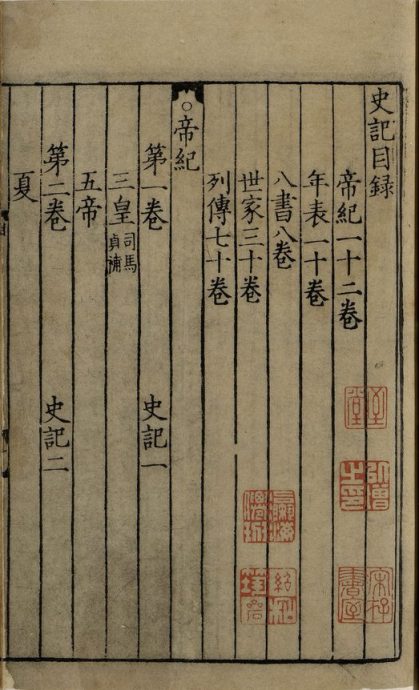 史記目録
帝紀一十二卷
年表一十卷
八書八卷
世家三十卷
列傳七十卷
帝紀
第一卷 史記一
三皇 司馬貞補
五帝
第二卷 史記二
夏